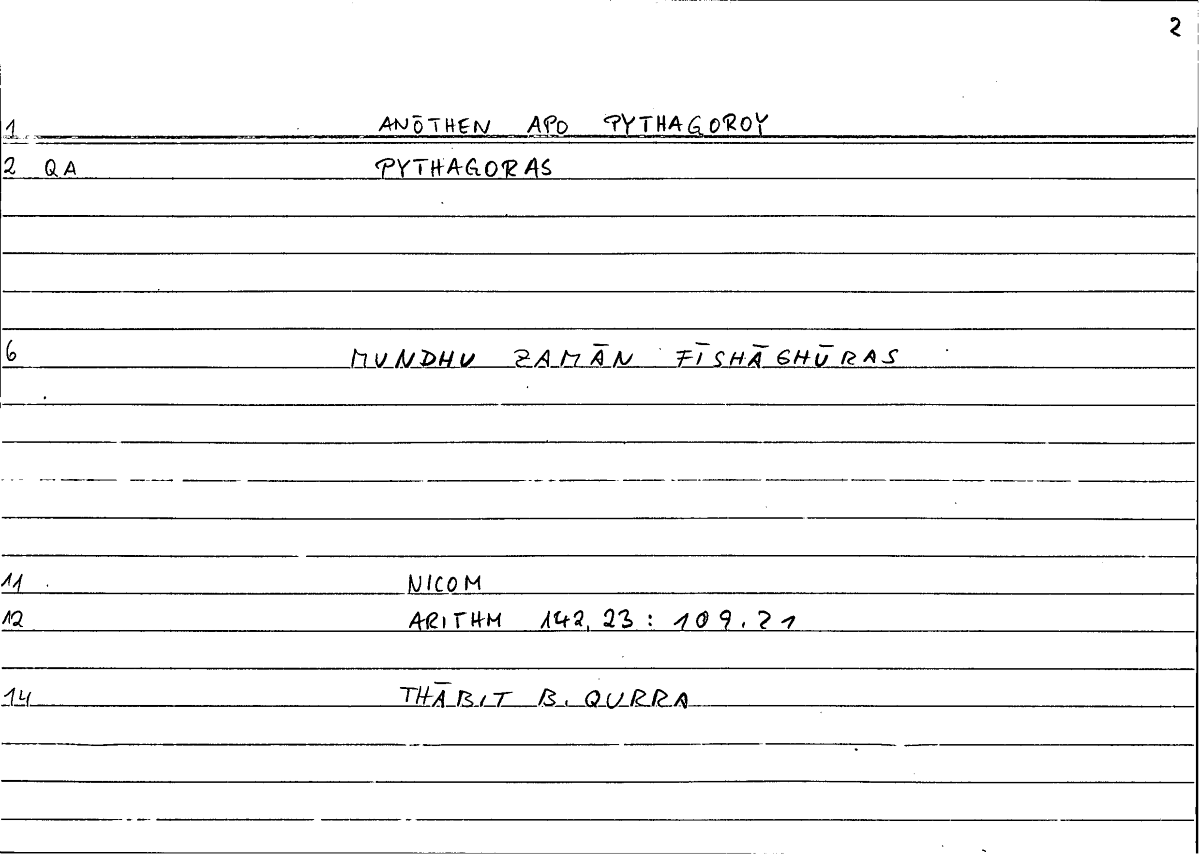 2
1 ANŌTHEN APO PYTHAGOROY
2 QA PYTHAGORAS
6 MUNDHU ZAMĀN FĪSHĀGHŪRAS
11 NICOM
12 ARITHM 142,23: 109.21
14 THĀBIT B. QURRA